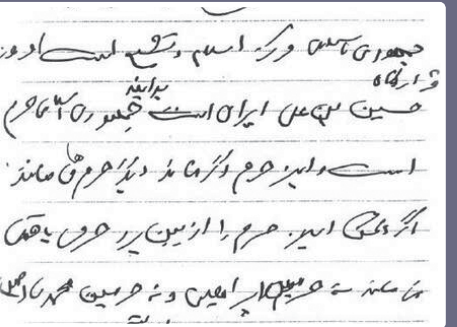 جمهوری اسلامی مرکز اسلام و تشیع است امروز
قرارگاه
بدانید
حسین بن علی ایران است جمهوری اسلامی حرم
است و این حرم اگر ماند دیگر حرم ها می مانند
اگر دشمن این حرم را از بین برد حرمی باقی
نمی ماند نه حرم ابراهیمی و نه حرم محمدی